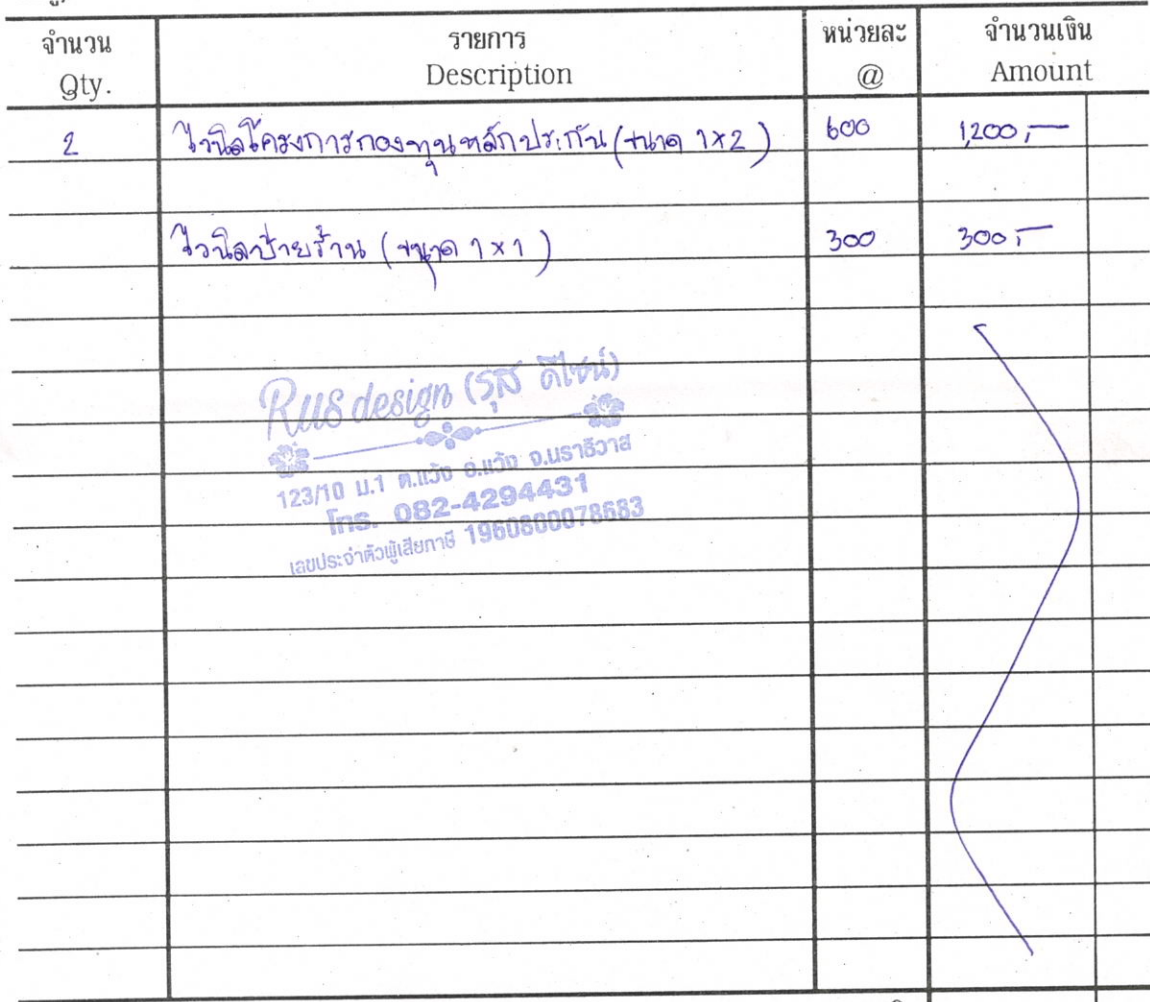 จำนวน รายการ หน่วยละ จำนวนเงิน
Qty. Description @ Amount
2 ไวนิลโครงการกองทุนหลักประกัน (ขนาด 1x2) 600 1,200,-
ไวนิลป้ายร้าน (ขนาด 1x1) 300 300,-
Rus design (รุส ดีไซน์)
123/10 ม.1 ต.แว้ง อ.แว้ง จ.นราธิวาส
โทร. 082-4294431
เลขประจำตัวผู้เสียภาษี 1960800078683